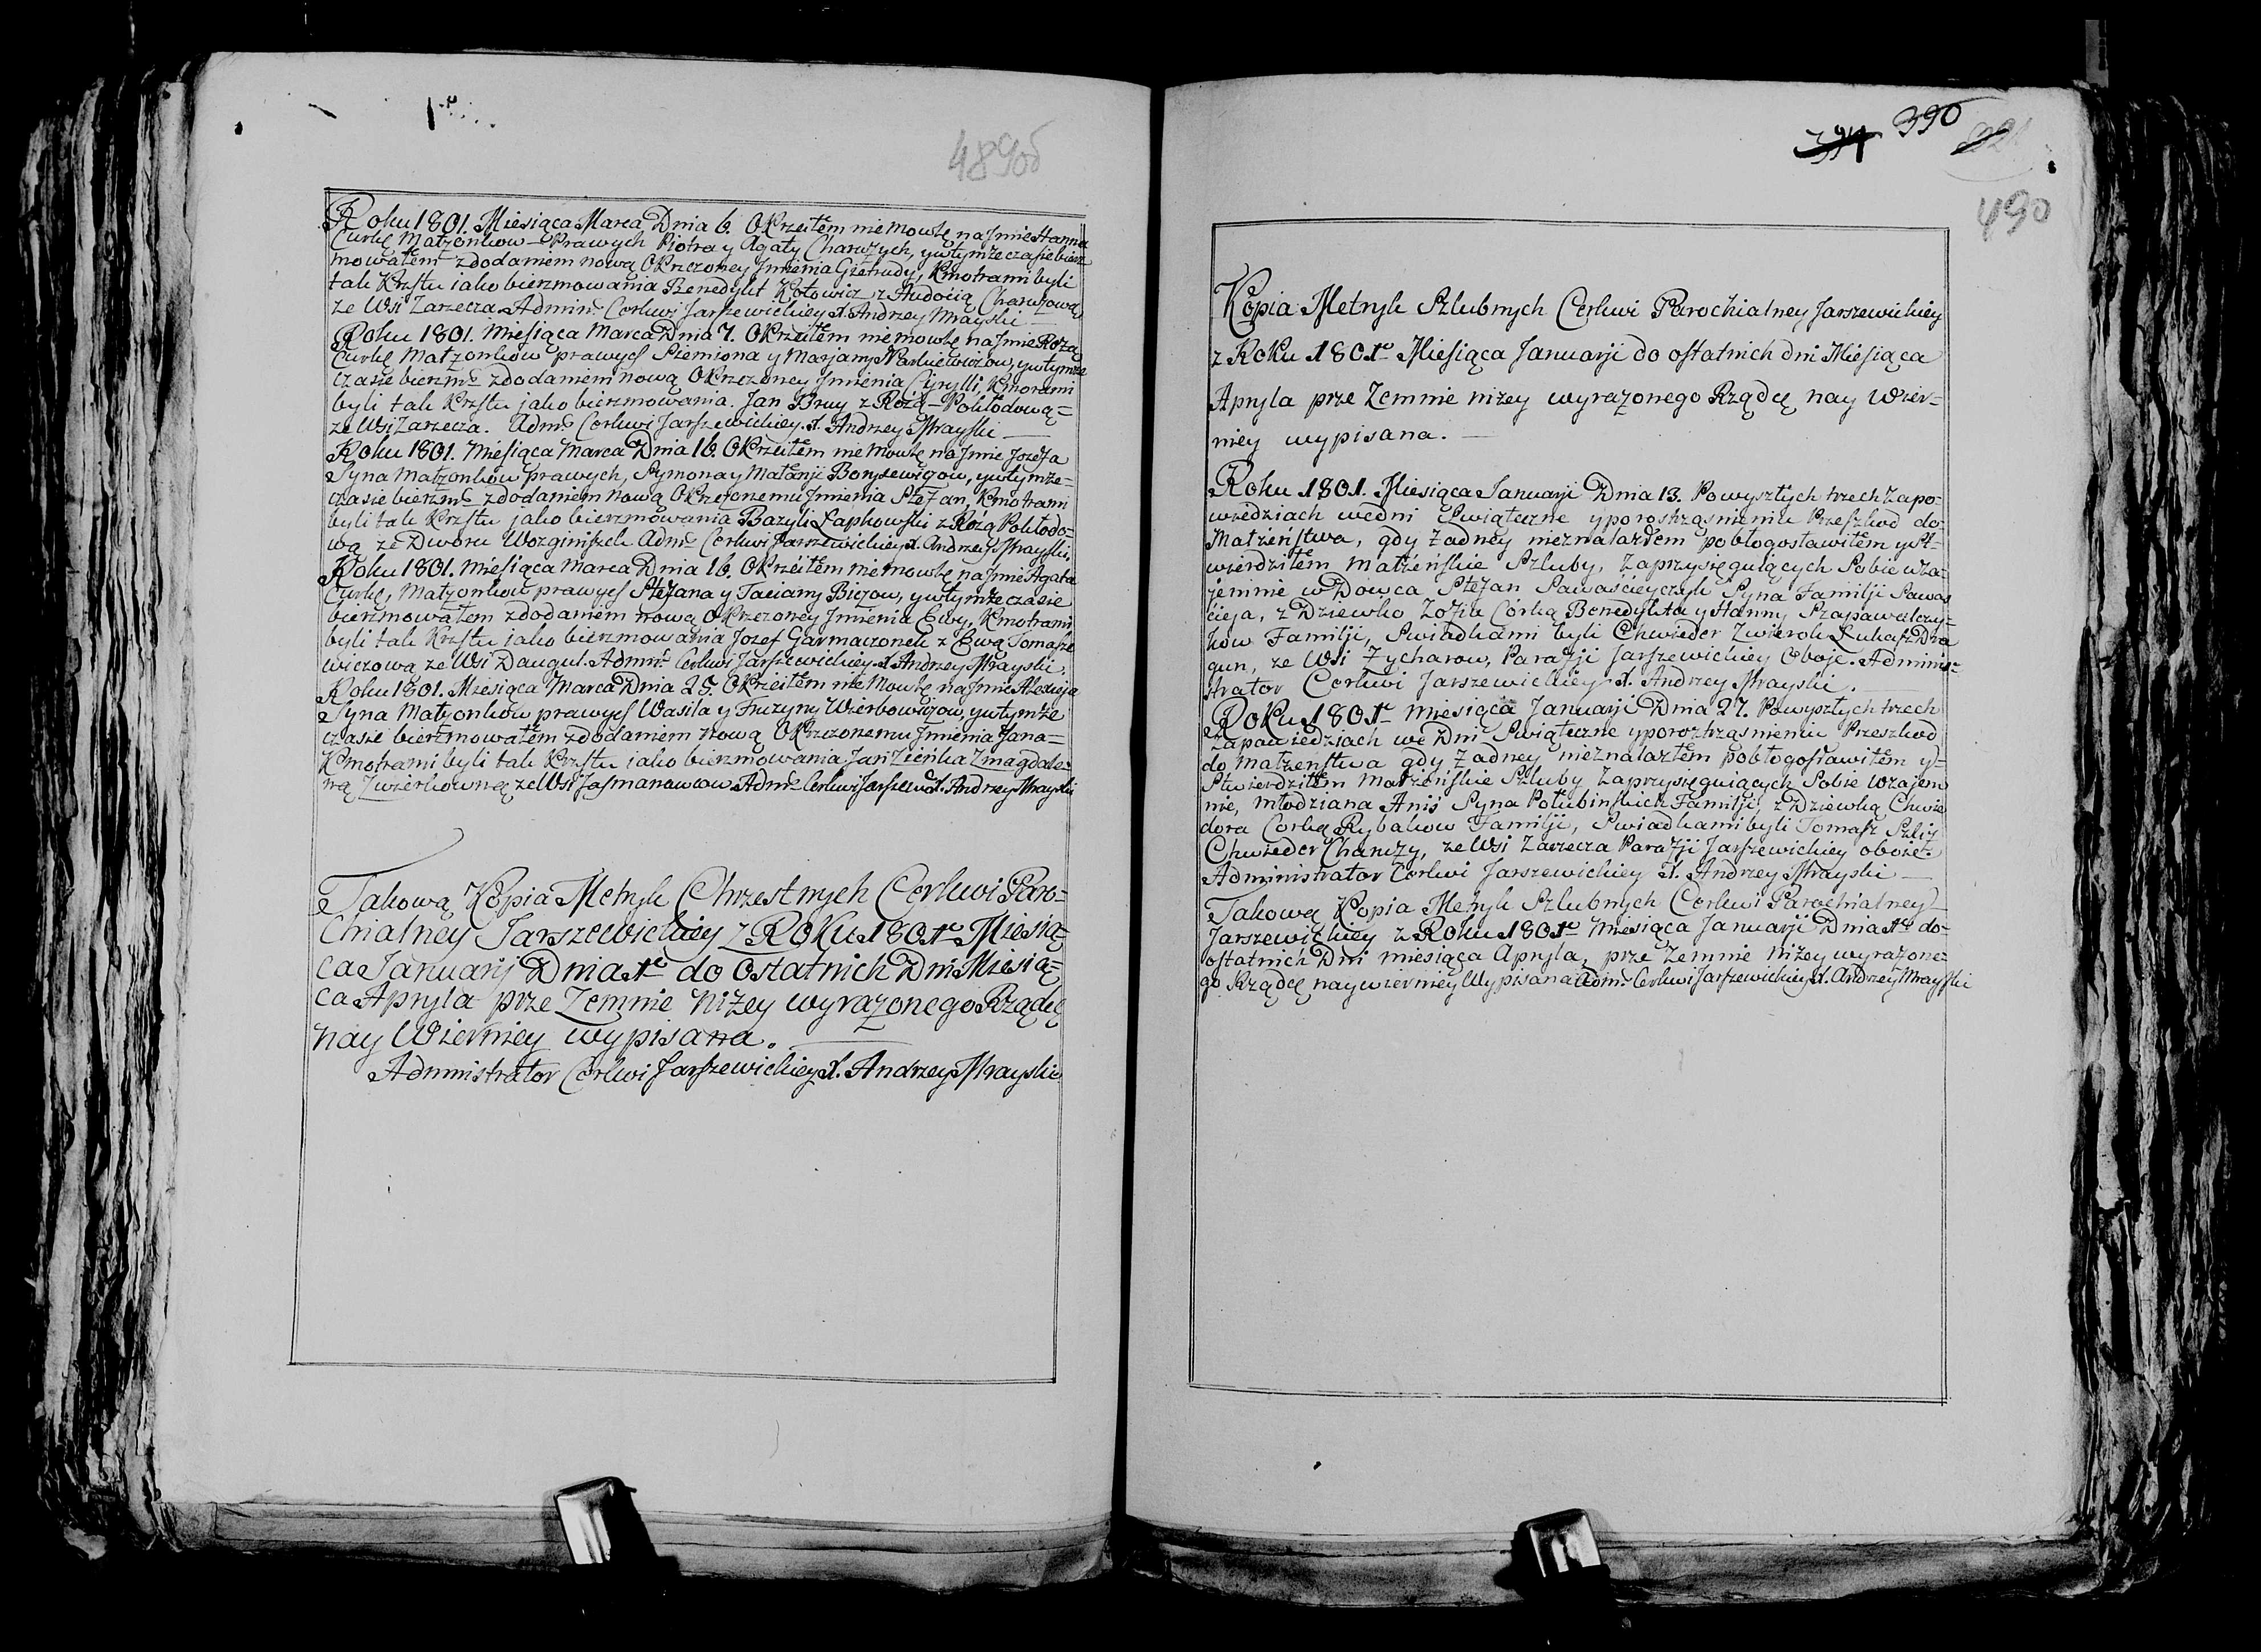 489об
Roku 1801. Miesiąca Marca Dnia 6. Okrzciłem niemowlę na Jmie Hanna
Curkę Małżonkow Prawych Piotra y Agaty Charużych, y w tymże czasie bierz
mowałem z dodaniem nową Okrzczoney Jmienia Giętrudy, Kmotrami byli
tak Krzstu iako bierzmowania Benedykt Kotowicz z Audocią Charużową
ze Wsi Zarzecza Admin: Cerkwi Jarszewickiey X. Andrzey Mrayski
Roku 1801. Miesiąca Marca Dnia 7. Okrzciłem niemowlę na Jmie Roza
Curkę Małżonkow prawych Siemiona y Marjany Narkiewiczow, y w tymże
czasie bierzm: z dodaniem nową Okrzczoney Jmienia Cyrylli, Kmotrami
byli tak Krzstu jako bierzmowania. Jan Bruy z Rożą Pokłodową=
ze Wsi Zarzecza. Adm: Cerkwi Jarszewickiey. X. Andrzey Mrayski
Roku 1801. Miesiąca Marca Dnia 16. Okrzciłem niemowlę na Jmie Jozefa
Syna Małżonkow prawych, Symona y Matanji Borysewiczow, y w tymże=
czasie bierzm: z dodaniem nową Okrzczonemu Jmienia Stefan, Kmotrami
byli tak Krzstu jako bierzmowania Bazyli Łapkowski z Rożą Pokłodo=
wą ze Dworu Adm: Cerkwi Jarszewickiey X. Andrzey Mrayski,
Roku 1801. Miesiąca Marca Dnia 16. Okrzciłem niemowlę na Jmie Agata
Curkę, Małżonkow prawych Stefana y Taciany Biczow, y w tymże czasie
bierzmowałem z dodaniem nową Okrzczoney Jmienia Ewy, Kmotrami
byli tak Krzstu iako bierzmowania Jozef Garmaczonek z Ewą Tomasze
wiczową ze Wsi Daugul. Admin: Cerkwi Jarszewickiey. X. Andrzey Mrayski,
Roku 1801. Miesiąca Marca Dnia 25. Okrzciłem niemowlę na Jmie Alexieja
Syna Małżonkow prawych Wasila y Fruzyny Wierbowiczow, y w tymże
czasie bierzmowałem z dodaniem nową Okrzczonemu Jmienia Jana=
Kmotrami byli tak Krzstu jako bierzmowania Jan Zieńka z magdale=
ną Zwierkowną ze Wsi Jasmanowcow Adm: Cerkwi Jarszew: X. Andrzey Mrayski
Takową Kopia Metryk Chrzestnych Cerkwi Paro=
chialney Jarszewickiey z Roku 1801go Miesią=
ca Januarij Dnia 1go do Ostatnich Dni Miesią=
ca Apryla prze Zemnie Niżey wyrażonego Rządcę
nay Wierniey wypisana.
Administrator Cerkwi Jarszewickiey X. Andrzey Mrayski
390
490
Kopia Metryk Szlubnych Cerkwi Parochialney Jarszewickiey
z Roku 1801go Miesiąca Januarji do ostatnich dni Miesiąca
Apryla prze Zemnie niżey wyrażonego Rządcę nay Wier=
niey wypisana.
Roku 1801. Miesiąca Januarji Dnia 13. Powyszłych trzech Zapo=
wiedziach we Dni Swiąteczne y poroztrząsnieniu Przeszkod do=
Małżeństwa, gdy żadney nieznalazłem pobłogosławiłem y st=
wierdziłem Małżeńskie Szluby, Zaprzysięgaiących Sobie wza=
jemnie wdowca Stefan Syna Familji Sawas
cieja, z Dziewko Zofiu Corką Benedykta y Hanny Szapawalczy=
kow Familji, Swiadkami byli Chwieder Zwierok Łukasz Dra
gun, ze Wsi Zycharow, Parafji Jarszewickiey Oboje. Adminis=
trator Cerkwi Jarszewickiey X. Andrzey Mrayski.
Roku 1801go Miesiąca Januarji Dnia 27. Powyszłych trzech
Zapowiedziach we Dni Swiąteczne y poroztrząsnieniu Przeszkod
do małżenstwa gdy Zadney nieznalazłem pobłogosławiłem y=
Stwierdziłem Małżeńskie Szluby Zaprzysięgaiących Sobie Wzajem
nie, młodziana Anis Syna Połubinskich Familji, z Dziewką Chwie
dora Corką Rybakow Familji, Swiadkami byli Tomasz Szliż
Chwieder Charuży, ze Wsi Zarzecza Parafji Jarszewickiey oboie.
Administrator Cerkwi Jarszewickiey X. Andrzey Mrayski
Takową Kopia Metryk Szlubnych Cerkwi Parochialney
Jarszewickiey z Roku 1801go Miesiąca Januarji Dnia 1go do=
ostatnich Dni miesiąca Apryla, prze Zemnie Niżey wyrażone=
go Rządcę naywierniey Wypisana Adm: Cerkwi Jarszewickiey X. Andrzey Mrayski